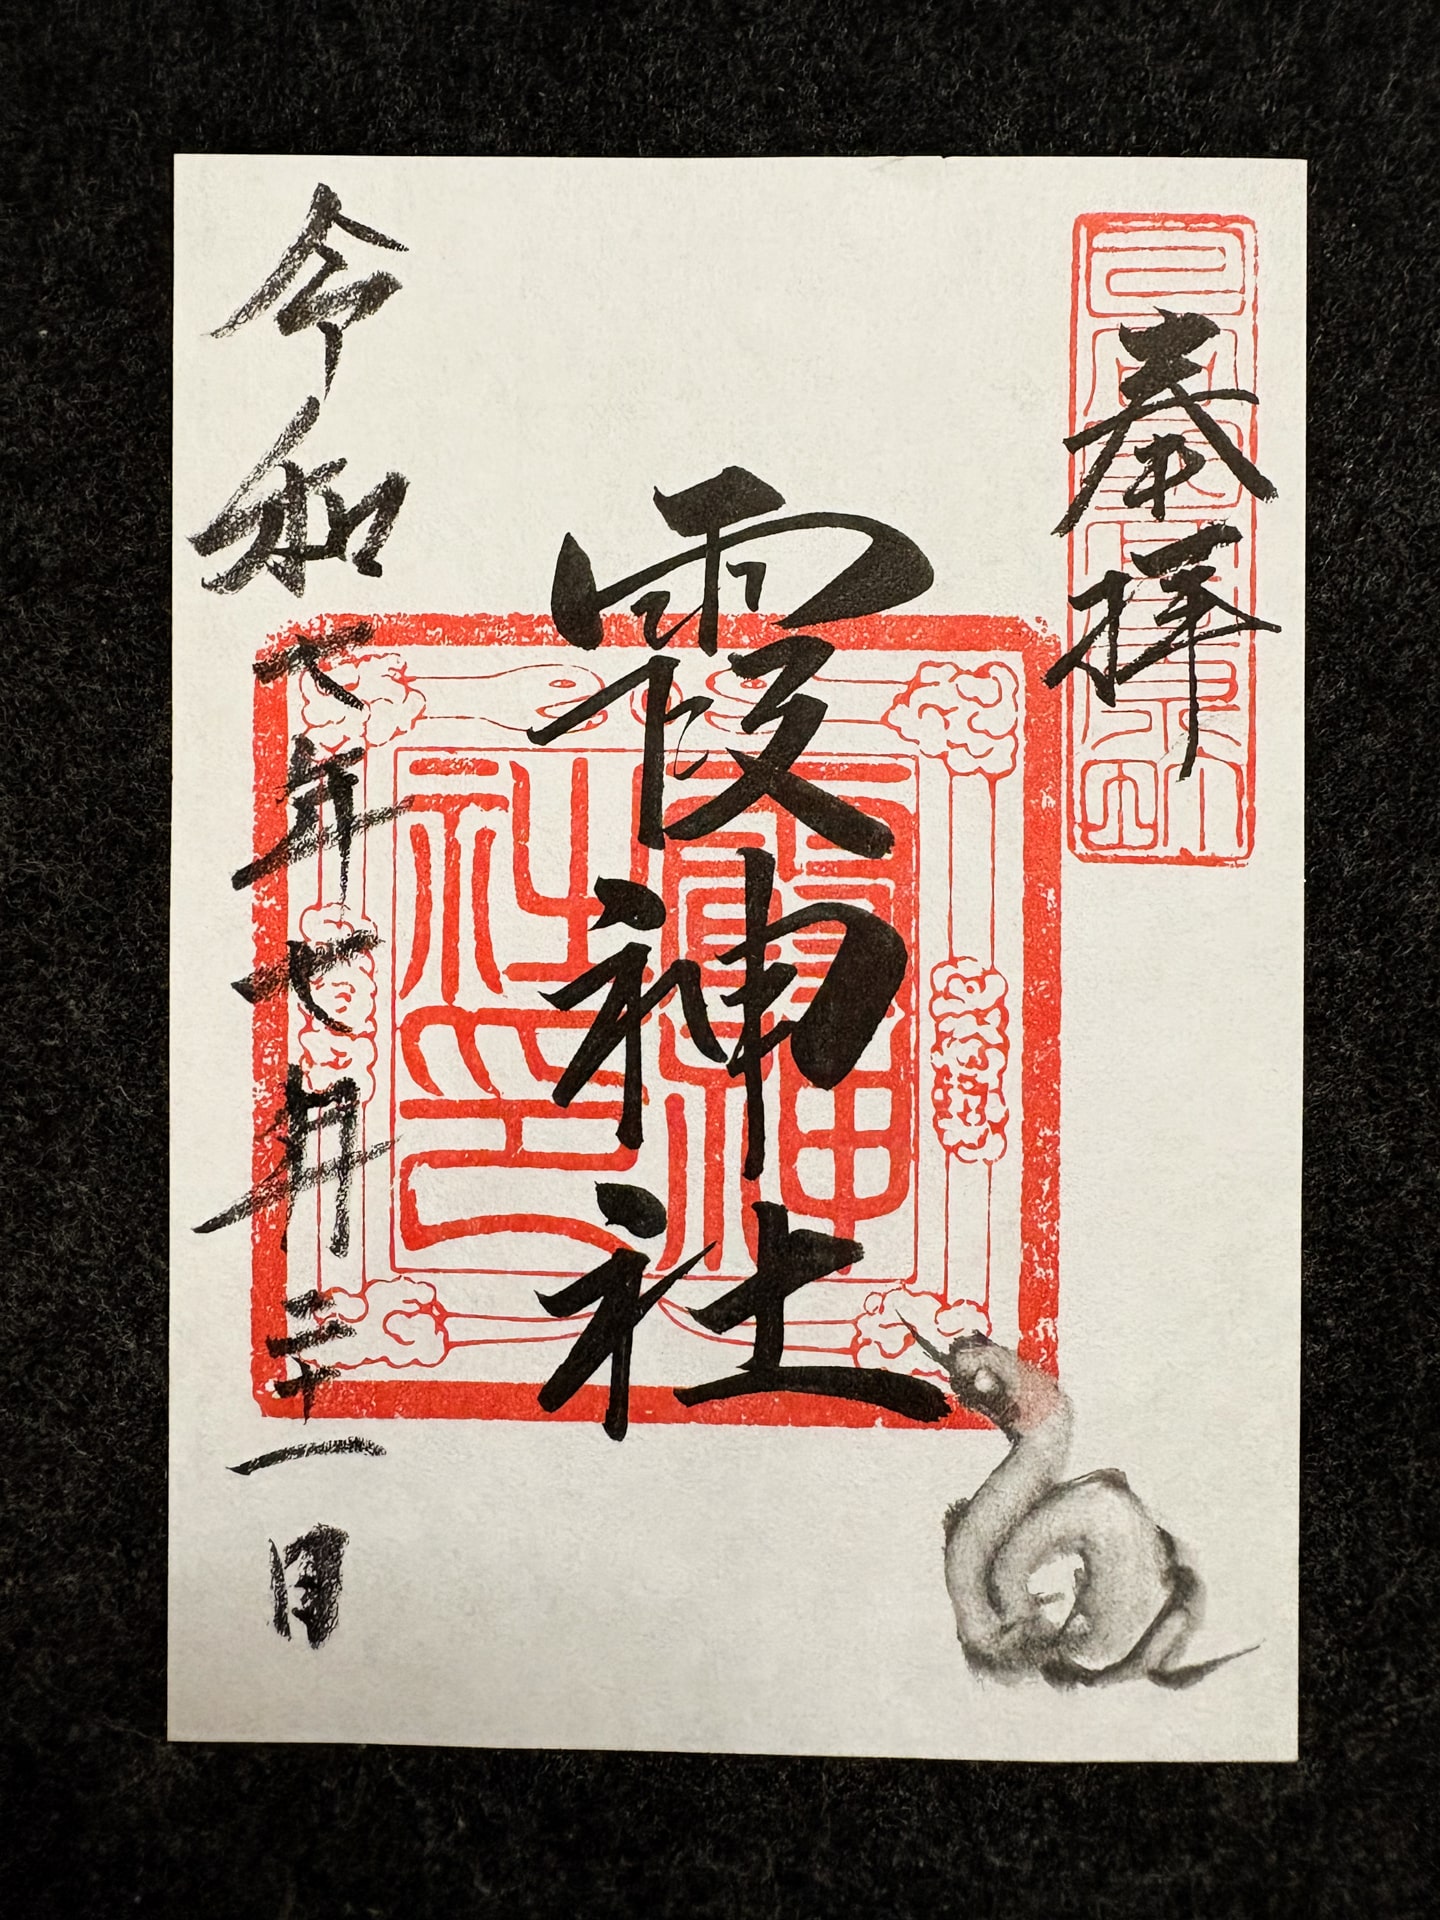 奉拝
霞神社
令和七年七月二十一日
霞神
社印